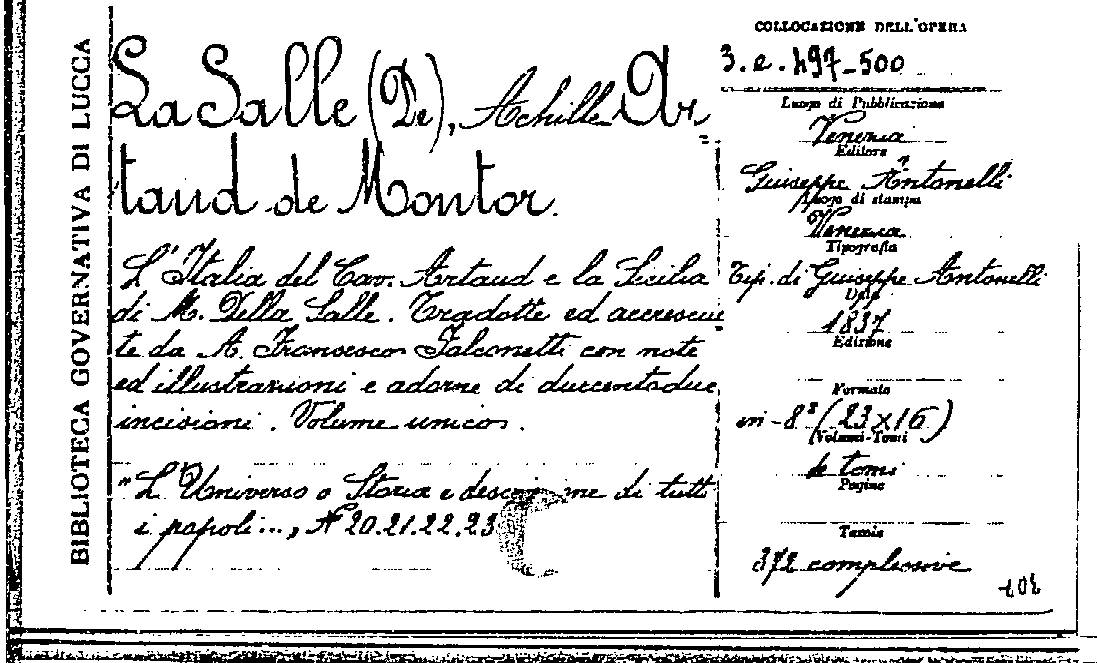 BIBLIOTECA GOVERNATIVA DI LUCCA
La Salle (De), Achille Ar-
taud de Montor.
L'Italia del Cav. Artaud e la Sicilia
di M. Della Salle. Tradotte ed accresciu
te da A. Francesco Falconetti con note
ed illustrazioni e adorne di duecentodue
incisioni. Volume unico.
"L'Universo o Storia e descrizione di tutti
i popoli..., N 20.21.22.23
COLLOCAZIONE DELL'OPERA
3.e.497-500
Luogo di Pubblicazione
Venezia
Editore
Giuseppe Antonelli
Luogo di stampa
Venezia
Tipografia
Tip. di Giuseppe Antonelli
Data
1837
Edizione
Formato
in-8° (23x16)
(Volumi-Tomi
tomi
Pagine
Tavole
372 complessive